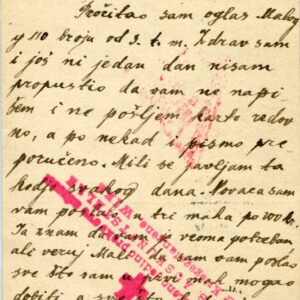 Pročitao sam oglas Malog
y 110 broju od 3. t. m. Zdrav sam
i još ni jedan dan nisam
propustio da vam ne napi
šem i ne pošljem kartu redov
no, a po nekad i pismo pre
poručeno. Mili se javljam ta
kodje svakog dana. Novaca sam
vam poslao u tri maha po
Ja znam da vam je veoma potreban
ali veruj Mali da sam vam poslao
sve što sam u prvi mah mogao
dobiti a sve